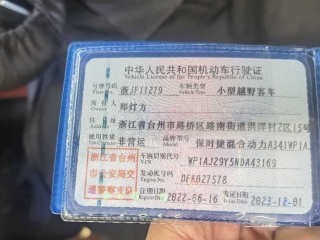 中华人民共和国机动车行驶证
Vehicle License of the People's Republic of China
号牌号码 浙JF11Z79 车辆类型 小型越野客车
Plate No. Vehicle Type
所有人 郑灯方
Owner
住址 浙江省台州市路桥区路南街道洪洋村2区15号
使用性质 非营运 品牌型号 保时捷混合动力A34(WP1A
Use Character
浙江省台州市公安局交通警察支队
车辆识别代号 WP1AJ29Y5NDA43169
VIN
发动机号码 DFK027578
Engine No.
注册日期 2022-06-16 发证日期 2023-12-01
Register Date Issue Date